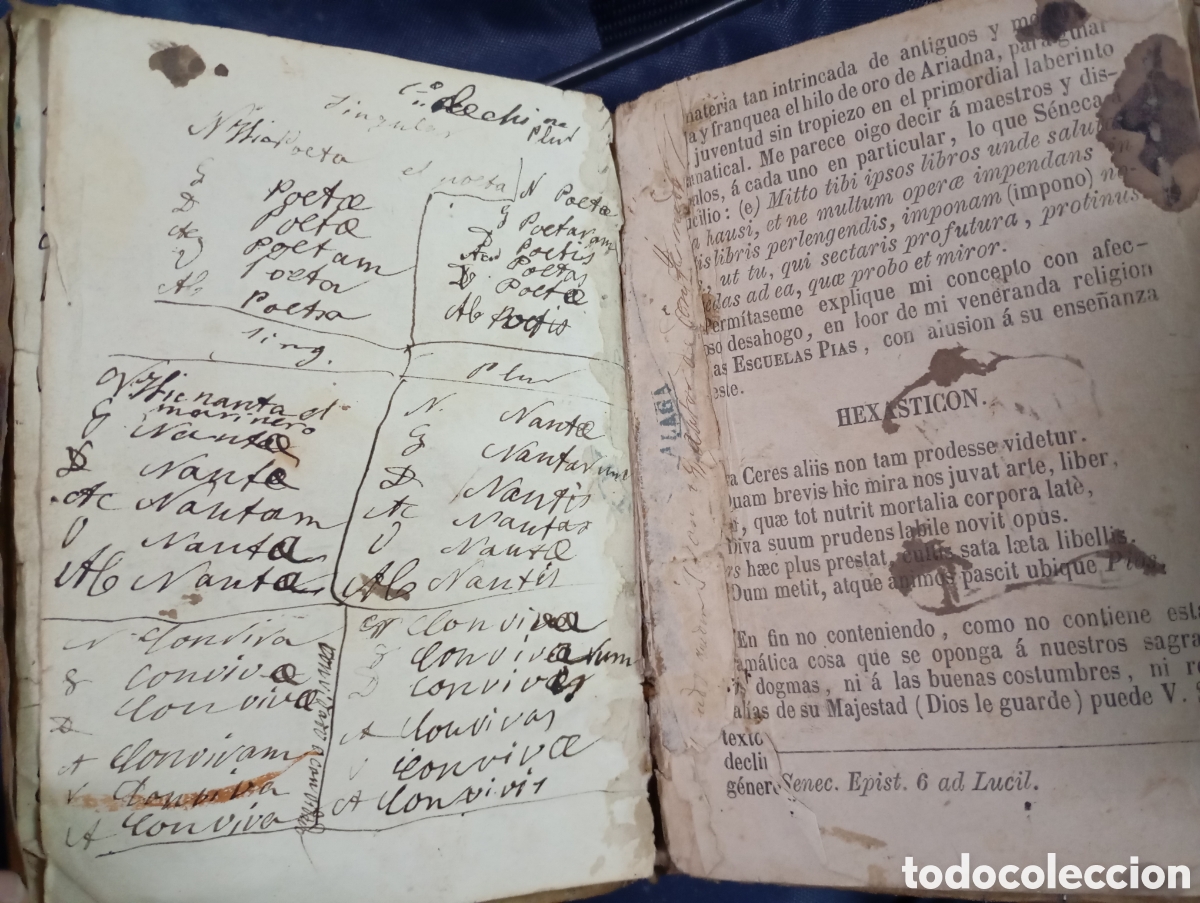 Singular
Plur
N. Hic Poeta
el poeta
G Poetæ
D Poetæ
Ac Poetam
V Poeta
Ab Poeta
N Poetæ
G Poetarum
D Poetis
Ac Poetas
V. Poetæ
Ab Poetis
Sing.
Plur
N. Hic nauta el
marinero
G Nautæ
D Nautæ
Ac Nautam
V Nauta
Ab Nauta
N. Nautæ
G Nautarum
D Nautis
Ac Nautas
V Nautæ
Ab Nautis
N. Conviva
G Convivæ
D Convivæ
A Convivam
V Conviva
A Conviva
N Convivæ
G Convivarum
D Convivis
A Convivas
V Convivæ
A Convivis
materia tan intrincada de antiguos y
a y franquea el hilo de oro de Ariadna, para guiar
juventud sin tropiezo en el primordial laberinto
matical. Me parece oigo decir á maestros y dis-
ulos, á cada uno en particular, lo que Séneca
cilio: (e) Mitto tibi ipsos libros unde salut
a hausi, et ne multum operæ impendans in
is libris perlengendis, imponam (impono) no-
, ut tu, qui sectaris profutura, protinus
edas ad ea, quæ probo et miror.
Permítaseme explique mi concepto con afec-
oso desahogo, en loor de mi venéranda religion
as ESCUELAS PIAS, con alusion á su enseñanza
este.
HEXASTICON.
a Ceres aliis non tam prodesse videtur.
Quam brevis hic mira nos juvat arte, liber,
r, quæ tot nutrit mortalia corpora latè,
Diva suum prudens labile novit opus.
rs hæc plus prestat cultis sata læta libellis.
Dum metit, atque animos pascit ubique Pius.
En fin no conteniendo, como no contiene esta
amática cosa que se oponga á nuestros sagra
dogmas, ni á las buenas costumbres, ni re
alias de su Majestad (Dios le guarde) puede V.
texto
declin
géner
Senec. Epist. 6 ad Lucil.
ALAGA
todocoleccion